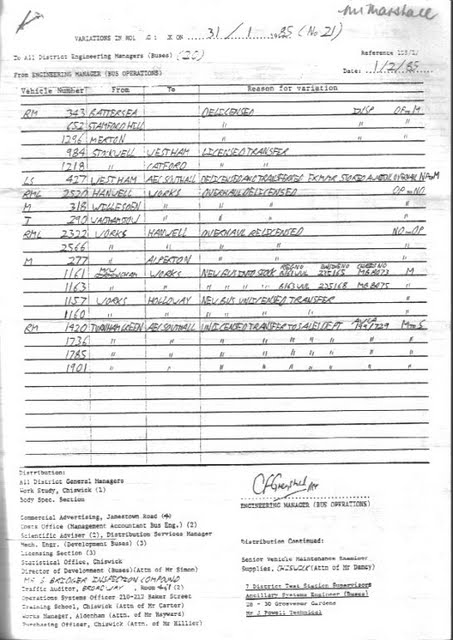 Mr Marshall
VARIATIONS IN ON 31 / 1 / 1985 (No 21)
To All District Engineering Managers (Buses) (20) Reference
From ENGINEERING MANAGER (BUS OPERATIONS) Date: 1/2/85
Vehicle Number From To Reason for variation
RM 343 BATTERSEA DELICENSED DISP OP → M
652 STAMFORD HILL " " "
1296 MERTON " " "
984 STOCKWELL WESTHAM LICENSED TRANSFER
1218 " CATFORD " "
LS 427 WESTHAM AEC SOUTHALL DELICENSED AND TRANSFERRED
RML 2520 HANWELL WORKS OVERHAUL DELICENSED OP → NO
M 318 WILLESDEN " " "
T 290 " " "
RML 2322 WORKS HANWELL OVERHAUL RELICENSED NO → OP
2566 " " " " "
M 277 " ALPERTON " " "
1161 MCW WORKS NEW BUS INTO STOCK 235165 MB8073 M
1163 " " " " " " 235168 MB8075 "
1157 WORKS HOLLOWAY NEW BUS UNLICENSED TRANSFER
1160 " " " " " "
RM 1920 TURNHAM GREEN AEC SOUTHALL UNLICENSED TRANSFER TO SALES DEPT M → S
1736 " " " " " " "
1785 " " " " " " "
1901 " " " " " " "
Distribution:
All District General Managers
Work Study, Chiswick (1)
Body Spec. Section
ENGINEERING MANAGER (BUS OPERATIONS)
Commercial Advertising, Jamestown Road
Costs Office (Management Accountant Bus Eng.) (2)
Scientific Adviser (2), Distribution Services Manager
Mech. Engr. (Development Buses) (3)
Licensing Section (3)
Statistical Office, Chiswick
Director of Development (Buses)(Attn of Mr Simon)
MR G BRIDGER INSPECTION COMPOUND
Traffic Auditor, BROADWAY, Room
Operations Systems Officer 210-213 Baker Street
Training School, Chiswick (Attn of Mr Carter)
Works Manager, Aldenham (Attn. of Mr Hayward)
Purchasing Officer, Chiswick (Attn of Mr Hillier)
Distribution Continued:
Senior Vehicle Maintenance Examiner
Supplies, CHISWICK (Attn of Mr Dancy)
7 District Test Station Supervisors
Ancillary Systems Engineer (Buses)
28 - 30 Grosvenor Gardens
Mr J Powell Technical